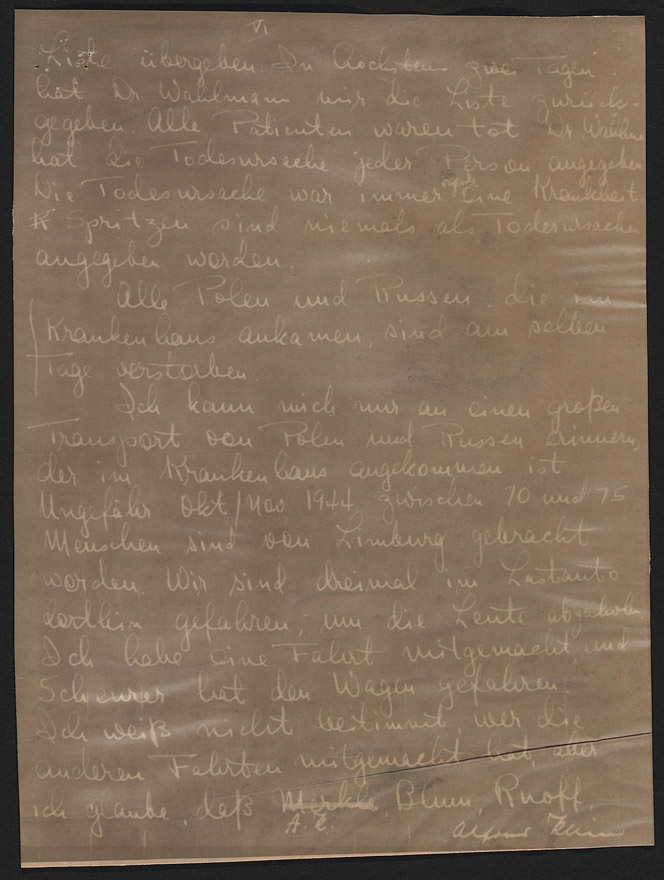 VI
Liste übergeben. In höchstens zwei Tagen
hat Dr Wahlmann mir die Liste zurück-
gegeben. Alle Patienten waren tot Dr Wahlma
hat die Todesursache jeder Person angegeben
Die Todesursache war immer eine Krankheit
Spritzen sind niemals als Todesursache
angegeben worden.
Alle Polen und Russen, die im
Krankenhaus ankamen, sind am selben
Tage verstorben.
Ich kann mich nur an einen großen
Transport von Polen und Russen erinnern,
der im Krankenhaus angekommen ist
Ungefähr Okt/Nov 1944 zwischen 70 und 75
Menschen sind von Limburg gebracht
worden. Wir sind dreimal im Lastauto
dorthin gefahren, um die Leute abzuholen.
Ich habe eine Fahrt mitgemacht, und
Scheurer hat den Wagen gefahren.
Ich weiß nicht bestimmt, wer die
anderen Fahrten mitgemacht hat, aber
ich glaube, daß Merkle, Blum, Ruoff.
A. K. Alfons Klein